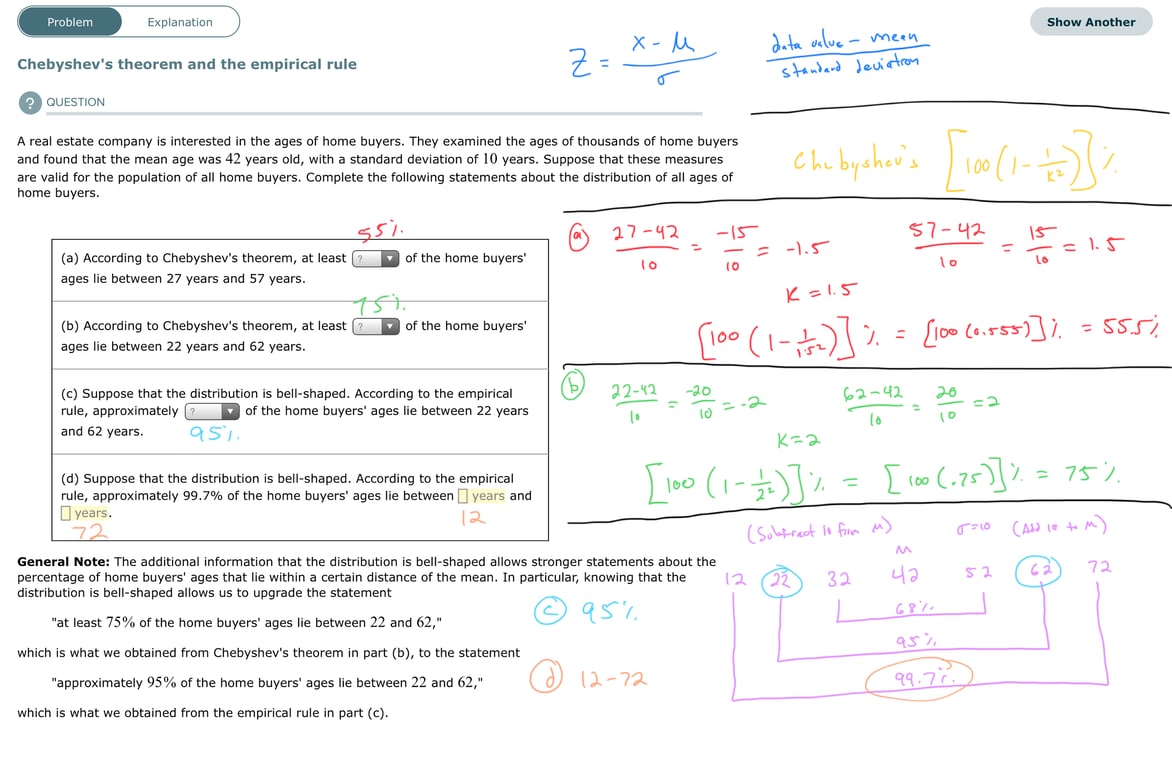 Problem
Explanation
Show Another
Chebyshev's theorem and the empirical rule
Z = x - μ / σ
data value - mean / standard deviation
? QUESTION
A real estate company is interested in the ages of home buyers. They examined the ages of thousands of home buyers
and found that the mean age was 42 years old, with a standard deviation of 10 years. Suppose that these measures
are valid for the population of all home buyers. Complete the following statements about the distribution of all ages of
home buyers.
Chebyshev's [100(1 - 1/K²)]%
55%
(a) According to Chebyshev's theorem, at least ? of the home buyers'
ages lie between 27 years and 57 years.
75%
(b) According to Chebyshev's theorem, at least ? of the home buyers'
ages lie between 22 years and 62 years.
(c) Suppose that the distribution is bell-shaped. According to the empirical
rule, approximately ? of the home buyers' ages lie between 22 years
and 62 years.
95%
(d) Suppose that the distribution is bell-shaped. According to the empirical
rule, approximately 99.7% of the home buyers' ages lie between years and
years.
72
12
(a) 27-42 / 10 = -15 / 10 = -1.5
57-42 / 10 = 15 / 10 = 1.5
K = 1.5
[100(1 - 1/1.5²)]% = [100(0.555)]% = 55.5%
(b) 22-42 / 10 = -20 / 10 = -2
62-42 / 10 = 20 / 10 = 2
K=2
[100(1 - 1/2²)]% = [100(.75)]% = 75%
(Subtract 10 from μ) σ=10 (Add 10 to μ)
μ
12 22 32 42 52 62 72
68%
95%
99.7%
General Note: The additional information that the distribution is bell-shaped allows stronger statements about the
percentage of home buyers' ages that lie within a certain distance of the mean. In particular, knowing that the
distribution is bell-shaped allows us to upgrade the statement
"at least 75% of the home buyers' ages lie between 22 and 62,"
which is what we obtained from Chebyshev's theorem in part (b), to the statement
"approximately 95% of the home buyers' ages lie between 22 and 62,"
which is what we obtained from the empirical rule in part (c).
(c) 95%
(d) 12-72